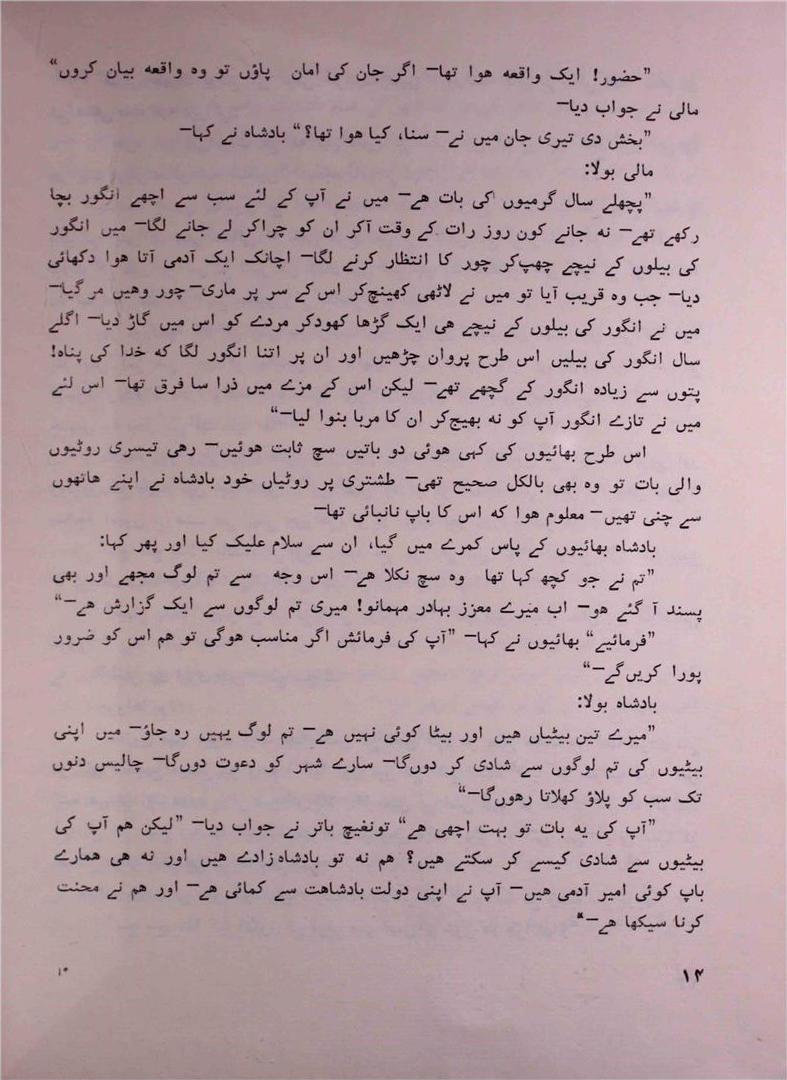 ”حضور! ایک واقعه هوا تها— اگر جان کی امان پاؤں تو وه واقعه بیان کروں“
مالی نے جواب دیا—
”بخش دی تیری جان میں نے— سنا، کیا هوا تها؟“ بادشاه نے کہا—
مالی بولا:
”پچهلے سال گرمیوں کی بات هے— میں نے آپ کے لئے سب سے اچهے انگور بچا
رکهے تهے— نه جانے کون روز رات کے وقت آکر ان کو چراکر لے جانے لگا— میں انگور
کی بیلوں کے نیچے چهپ‌کر چور کا انتظار کرنے لگا— اچانک ایک آدمی آتا هوا دکهائی
دیا— جب وه قریب آیا تو میں نے لاٹهی کهینچ‌کر اس کے سر پر ماری— چور وهیں مر گیا—
میں نے انگور کی بیلوں کے نیچے هی ایک گڑها کهودکر مردے کو اس میں گاڑ دیا— اگلے
سال انگور کی بیلیں اس طرح پروان چڑهیں اور ان پر اتنا انگور لگا که خدا کی پناه!
پتوں سے زیاده انگور کے گچهے تهے— لیکن اس کے مزے میں ذرا سا فرق تها— اس لئے
میں نے تازے انگور آپ کو نه بهیج‌کر ان کا مربا بنوا لیا—“
اس طرح بهائیوں کی کہی هوئی دو باتیں سچ ثابت هوئیں— رهی تیسری روٹیوں
والی بات تو وه بهی بالکل صحیح تهی— طشتری پر روٹیاں خود بادشاه نے اپنے هاتهوں
سے چنی تهیں— معلوم هوا که اس کا باپ نانبائی تها—
بادشاه بهائیوں کے پاس کمرے میں گیا، ان سے سلام علیک کیا اور پهر کہا:
”تم نے جو کچه کہا تها وه سچ نکلا هے— اس وجه سے تم لوگ مجهے اور بهی
پسند آ گئے هو— اب میرے معزز بہادر مہمانو! میری تم لوگوں سے ایک گزارش هے—“
”فرمائیے“ بهائیوں نے کہا— ”آپ کی فرمائش اگر مناسب هوگی تو هم اس کو ضرور
پورا کریں‌گے—“
بادشاه بولا:
”میرے تین بیٹیاں هیں اور بیٹا کوئی نہیں هے— تم لوگ یہیں ره جاؤ— میں اپنی
بیٹیوں کی تم لوگوں سے شادی کر دوں‌گا— سارے شہر کو دعوت دوں‌گا— چالیس دنوں
تک سب کو پلاؤ کهلاتا رهوں‌گا—“
”آپ کی یه بات تو بہت اچهی هے“ تونغیچ باتر نے جواب دیا— ”لیکن هم آپ کی
بیٹیوں سے شادی کیسے کر سکتے هیں؟ هم نه تو بادشاه‌زادے هیں اور نه هی همارے
باپ کوئی امیر آدمی هیں— آپ نے اپنی دولت بادشاهت سے کمائی هے— اور هم نے محنت
کرنا سیکها هے—“
۱۴